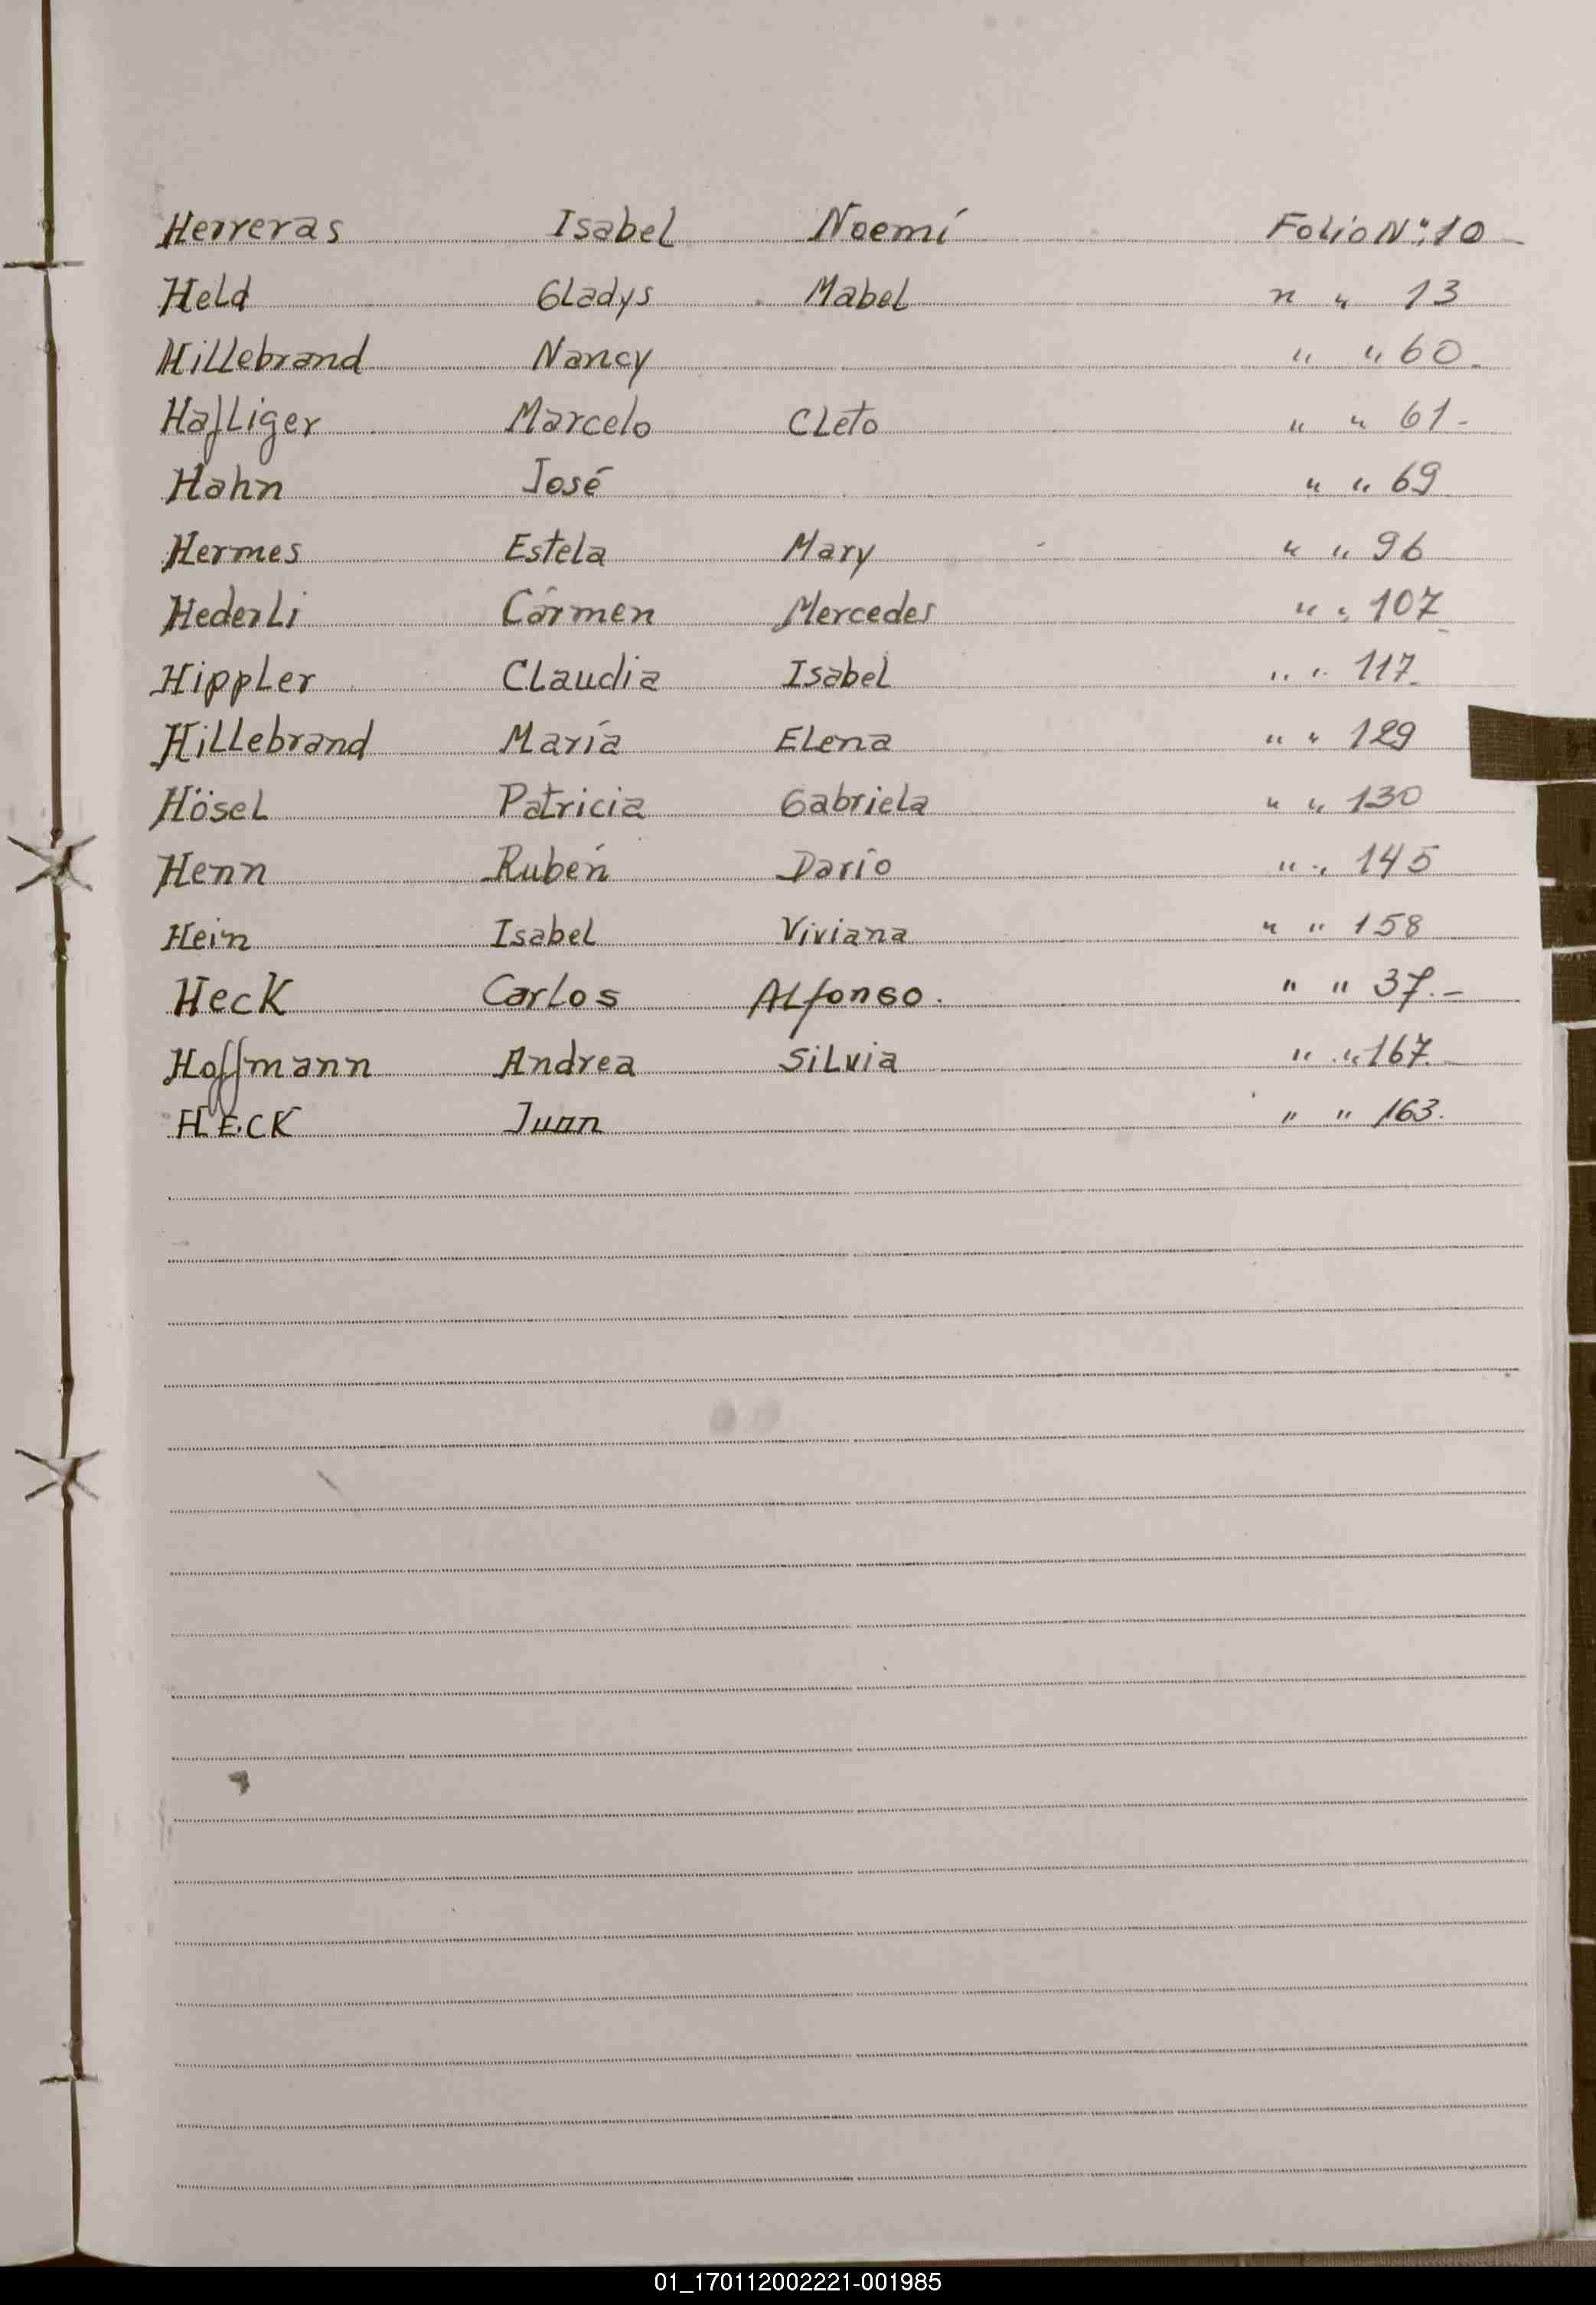 Herreras Isabel Noemí Folio Nº:10
Held Gladys Mabel " " 13
Hillebrand Nancy " " 60.
Hafliger Marcelo Cleto " " 61-
Hahn José " " 69
Hermes Estela Mary " " 96
Hederli Cármen Mercedes " " 107
Hippler Claudia Isabel " " 117.
Hillebrand María Elena " " 129
Hösel Patricia Gabriela " " 130
Henn Rubén Darío " " 145
Hein Isabel Viviana " " 158
Heck Carlos Alfonso. " " 37.-
Hoffmann Andrea Silvia " " 167.
HECK Juan " " 163.
01_170112002221-001985